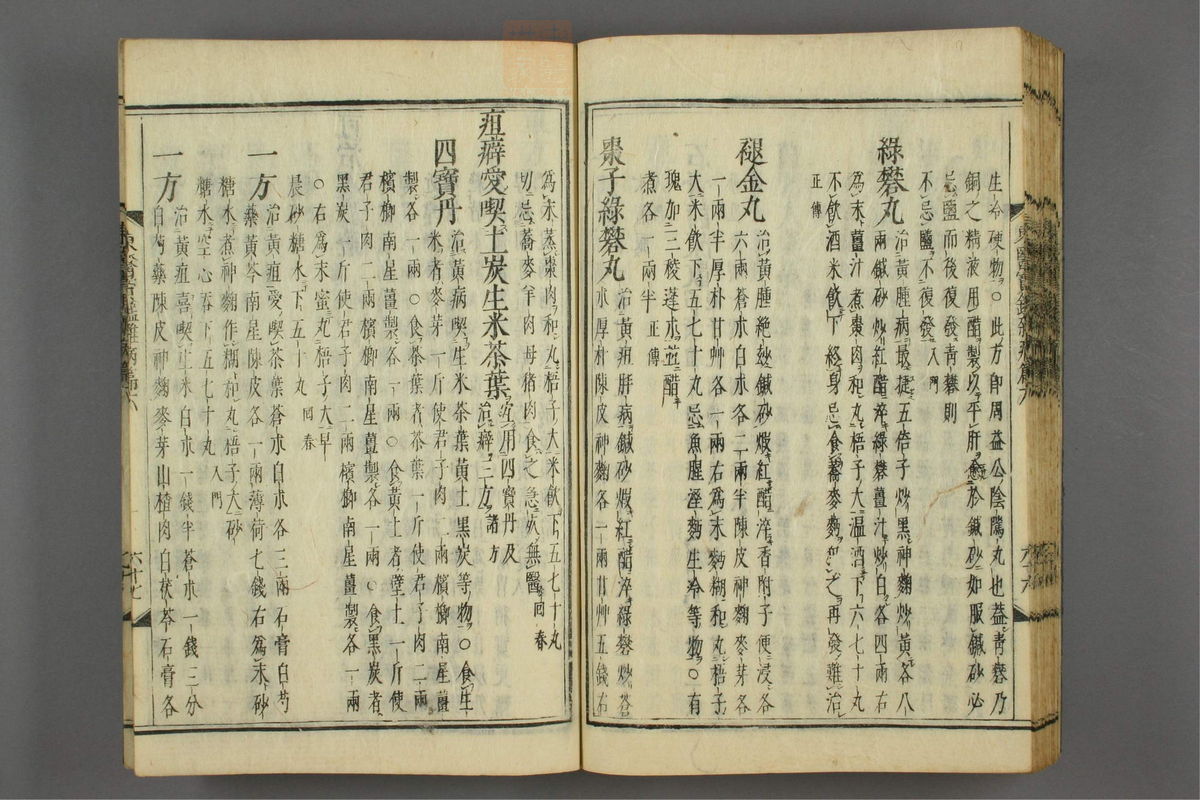 生冷硬物○此方卽周益公陰隲丸也葢靑礬乃
銅之精液用醋製以平肝勝於鍼砂如服鍼砂必
忌鹽而後復發靑礬則
不忌鹽不復發入門
綠礬丸 治黃腫病最捷五倍子炒黑神麴炒黃各八
兩鍼砂炒紅醋淬綠礬薑汁炒白各四兩右
爲末薑汁煮棗肉和丸梧子大溫酒下六七十丸
不飮酒米飮下終身忌食蕎麥麪犯之再發難治
正傳
褪金丸 治黃腫絶玅鍼砂煆紅醋淬香附子便浸各
六兩蒼朮白朮各二兩半陳皮神麴麥芽各
一兩半厚朴甘艸各一兩右爲末麪糊和丸梧子
大米飮下五七十丸忌魚腥溼麪生冷等物○有
瑰加三稜蓬朮並醋
煮各一兩半正傳
棗子綠礬丸 治黃疸肝病鍼砂煆紅醋淬綠礬炒蒼
朮厚朴陳皮神麴各一兩甘艸五錢右
爲末蒸棗肉和丸梧子大米飮下五七十丸
切忌蕎麥羊肉母猪肉食之急死無醫回春
疸癖愛喫土炭生米茶葉 宜用四寶丹及
治癖三方諸方
四寶丹 治黃病喫生米茶葉黃土黑炭等物○食生
米者麥芽一斤使君子肉二兩檳榔南星薑
製各一兩○食茶葉者茶葉一斤使君子肉二兩
檳榔南星薑製各一兩○食黃土者壁土一斤使
君子肉二兩檳榔南星薑製各一兩○食黑炭者
黑炭一斤使君子肉二兩檳榔南星薑製各一兩
○右爲末蜜丸梧子大早
晨砂糖水下五十丸回春
一方 治黃疸愛喫茶葉蒼朮白朮各三兩石膏白芍
藥黃芩南星陳皮各一兩薄荷七錢右爲末砂
糖水煮神麴作糊和丸梧子大砂
糖水空心呑下五七十丸入門
一方 治黃疸喜喫生米白朮一錢半蒼朮一錢三分
白芍藥陳皮神麴麥芽山楂肉白茯苓石膏各